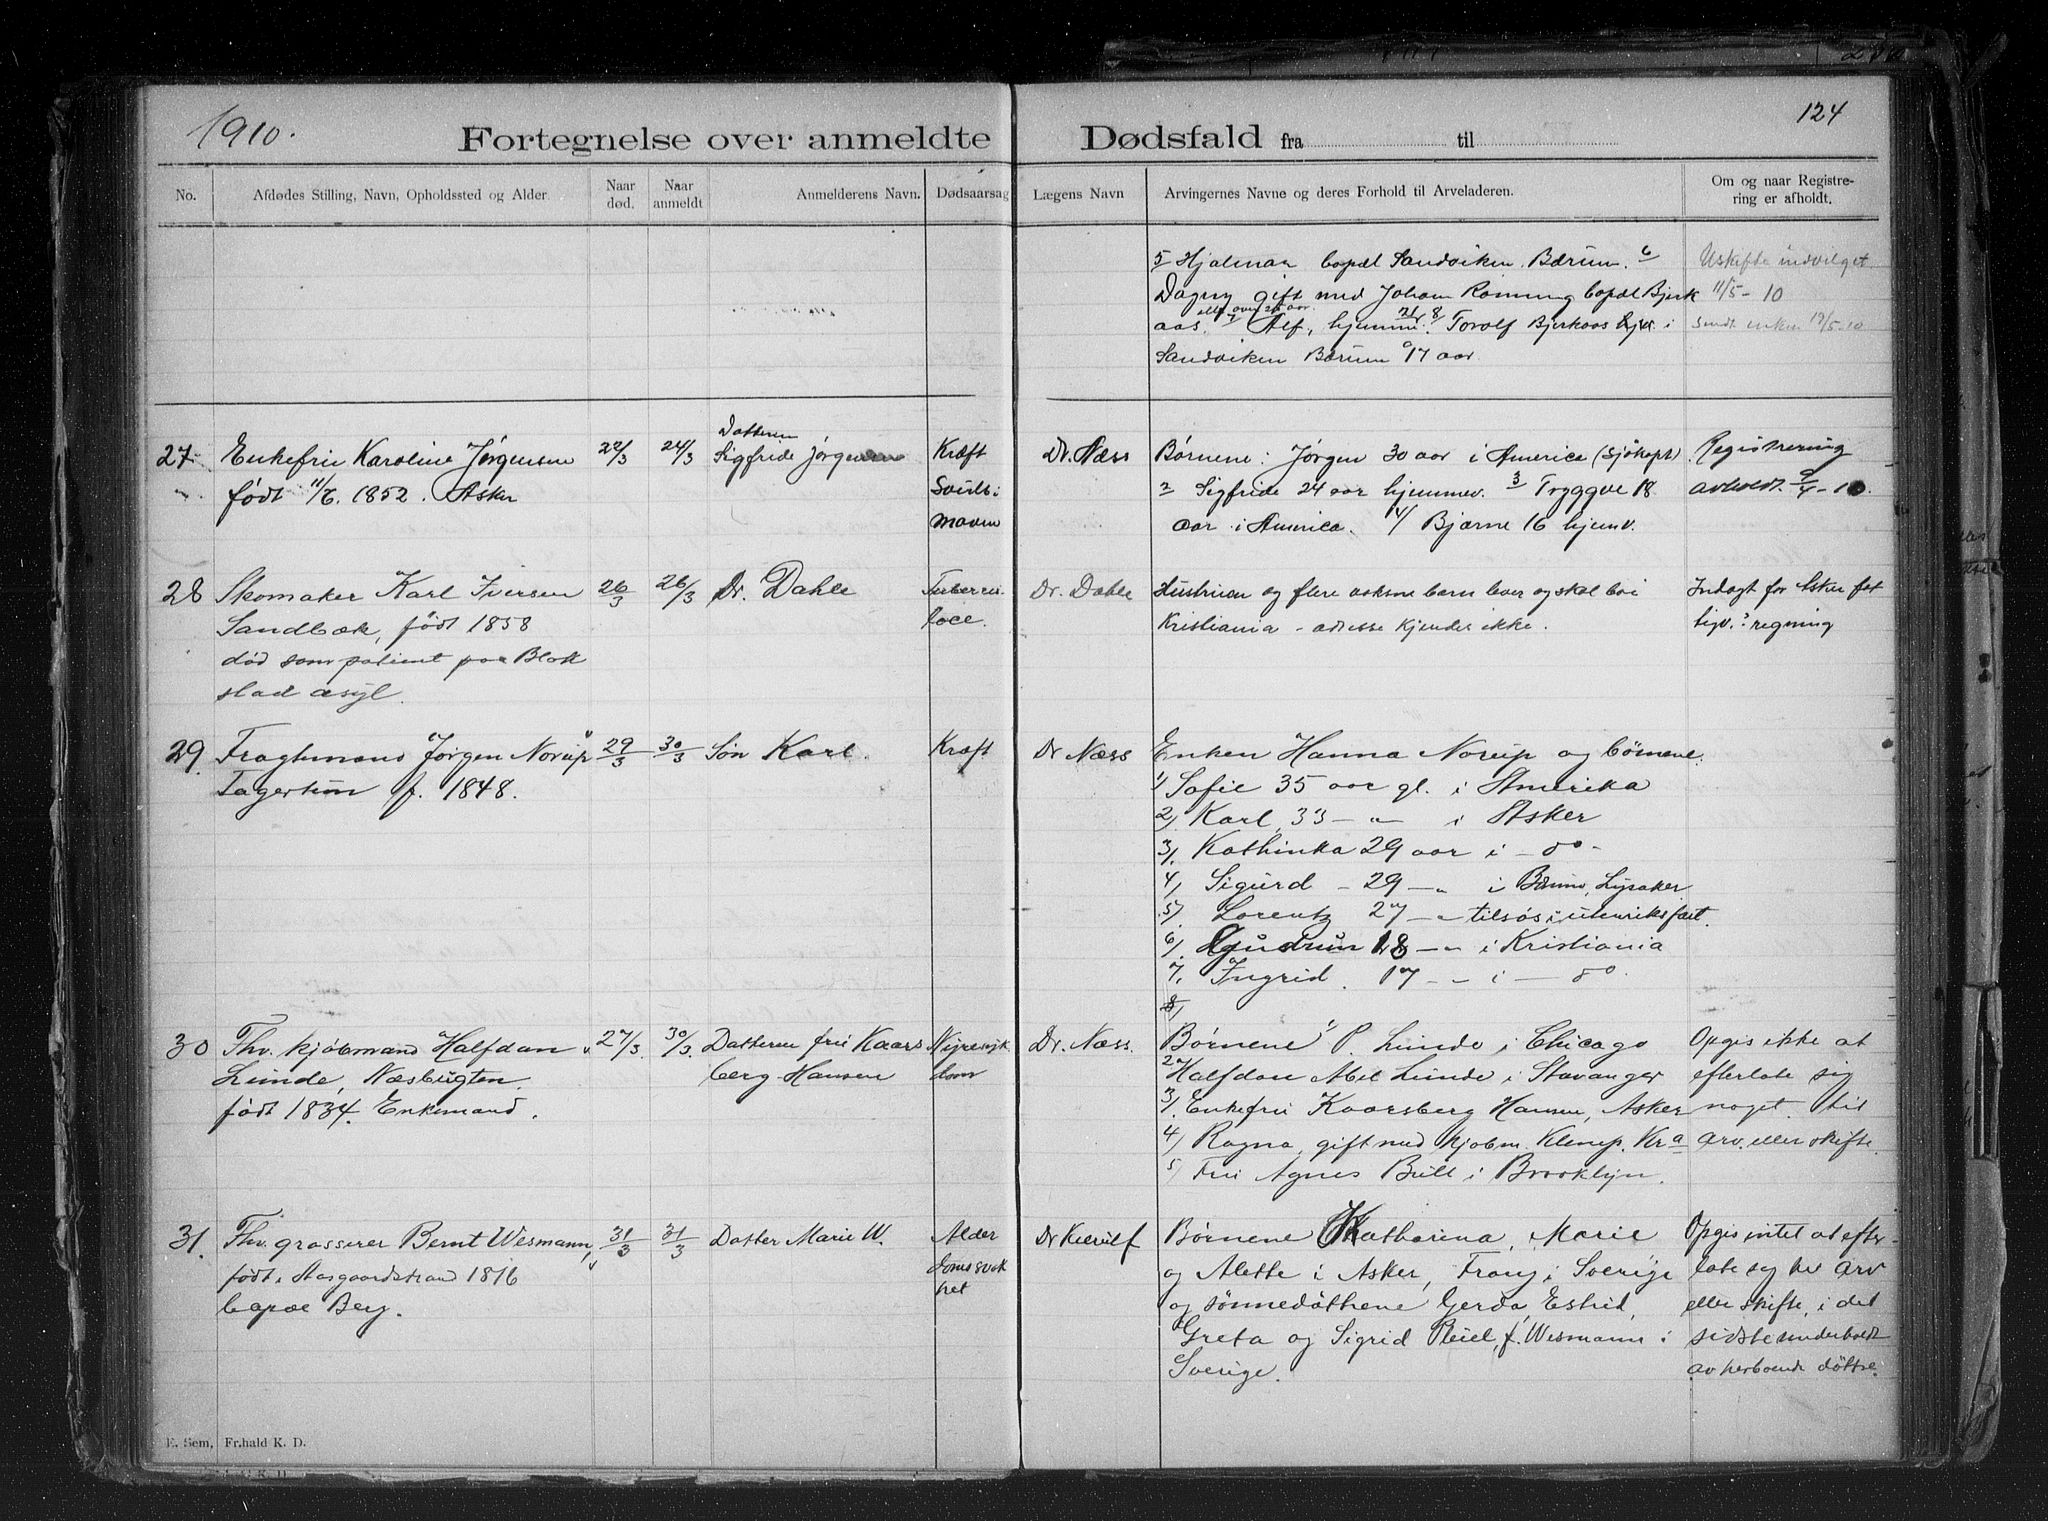 1910.
124
Fortegnelse over anmeldte Dødsfald fra til
No.
Afdødes Stilling, Navn, Opholdssted og Alder
Naar død.
Naar anmeldt
Anmelderens Navn.
Dødsaarsag
Lægens Navn
Arvingernes Navne og deres Forhold til Arveladeren.
Om og naar Registre-
ring er afholdt.
5 Hjalmar bopæl Sandviken Bærum. 6
Dagny gift med Johan Ronning bopæl Bjerk
aas. 7 Alf, hjemme. 8 Torolf Bjerkaas i
Sandviken Bærum 17 aar.
Uskifte indvilget
11/5-10
sendt enken 12/5-10
27
Enkefru Karoline Jørgensen
født 11/6. 1852. Asker
22/3
24/3
Datteren
Sigfride Jørgensen
Kræft
Svulst i
maven
Dr. Næss
Børnene: Jørgen 30 aar i America (sjökapt)
2 Sigfride 24 aar hjemmev. 3 Tryggve 18
aar i America. 4/ Bjarne 16 hjemv.
Registrering
avholdt 9/4-10.
28
Skomaker Karl Iversen
Sandbæk, født 1858
død som patient paa Blak
stad asyl.
26/3
26/3
Dr. Dahle
Tuberku
lose.
Dr. Dahle
Hustruen og flere voksne barn lever og skal bo i
Kristiania - adresse kjendes ikke.
Indlagt for Asker fat
tigv.s regning
29.
Fragtmand Jørgen Norup
Tagertun f. 1848.
29/3
30/3
Søn Karl.
Kræft
Dr Næss
Enken Hanna Norup og börnene.
1) Sofie 35 aar gl. i Amerika
2) Karl 33 - " - i Asker
3/. Kathinka 29 aar i - do -
4) Sigurd - 29 - " i Bærum, Lysaker
5) Lorentz 27 - " tilsøs i utenriksfart.
6) Gudrun 18 - " i Kristiania
7. Ingrid. 17 - " i - do.
8)
30
Fhv. kjøbmand Halfdan
Lunde, Næsbugten.
født 1834. Enkemand.
27/3.
30/3.
Datteren fru Kaars
berg Hansen
Nyresyk
dom
Dr. Næss.
Børnene 1 P. Lunde i Chicago
2 Halfdan Abel Lunde i Stavanger
3). Enkefru Kaarsberg Hansen, Asker
4) Ragna, gift med kjøbm. Klenup. Kra
5) Fru Agnes Bull i Brooklyn.
Opgis ikke at
efterlate sig
noget til
arv. eller skifte.
31.
Fhv. grosserer Bernt Wesmann,
født i Aasgaardstrand 1816
bopæl Berg.
31/3
31/3
Datter Marie W.
Alder
domssvak
het
Dr Kierulf
Børnene Katharina, Marie
og Alette i Asker, Franz i Sverige
og sønnedøttrene Gerda, Estrid,
Greta og Sigrid Pleiel, f. Wesmann i
Sverige.
Opgis intet at efter-
late sig til arv
eller skifte, i det
sidste underholdt
av herboende døttre.
E. Sem, Fr.hald K. D.